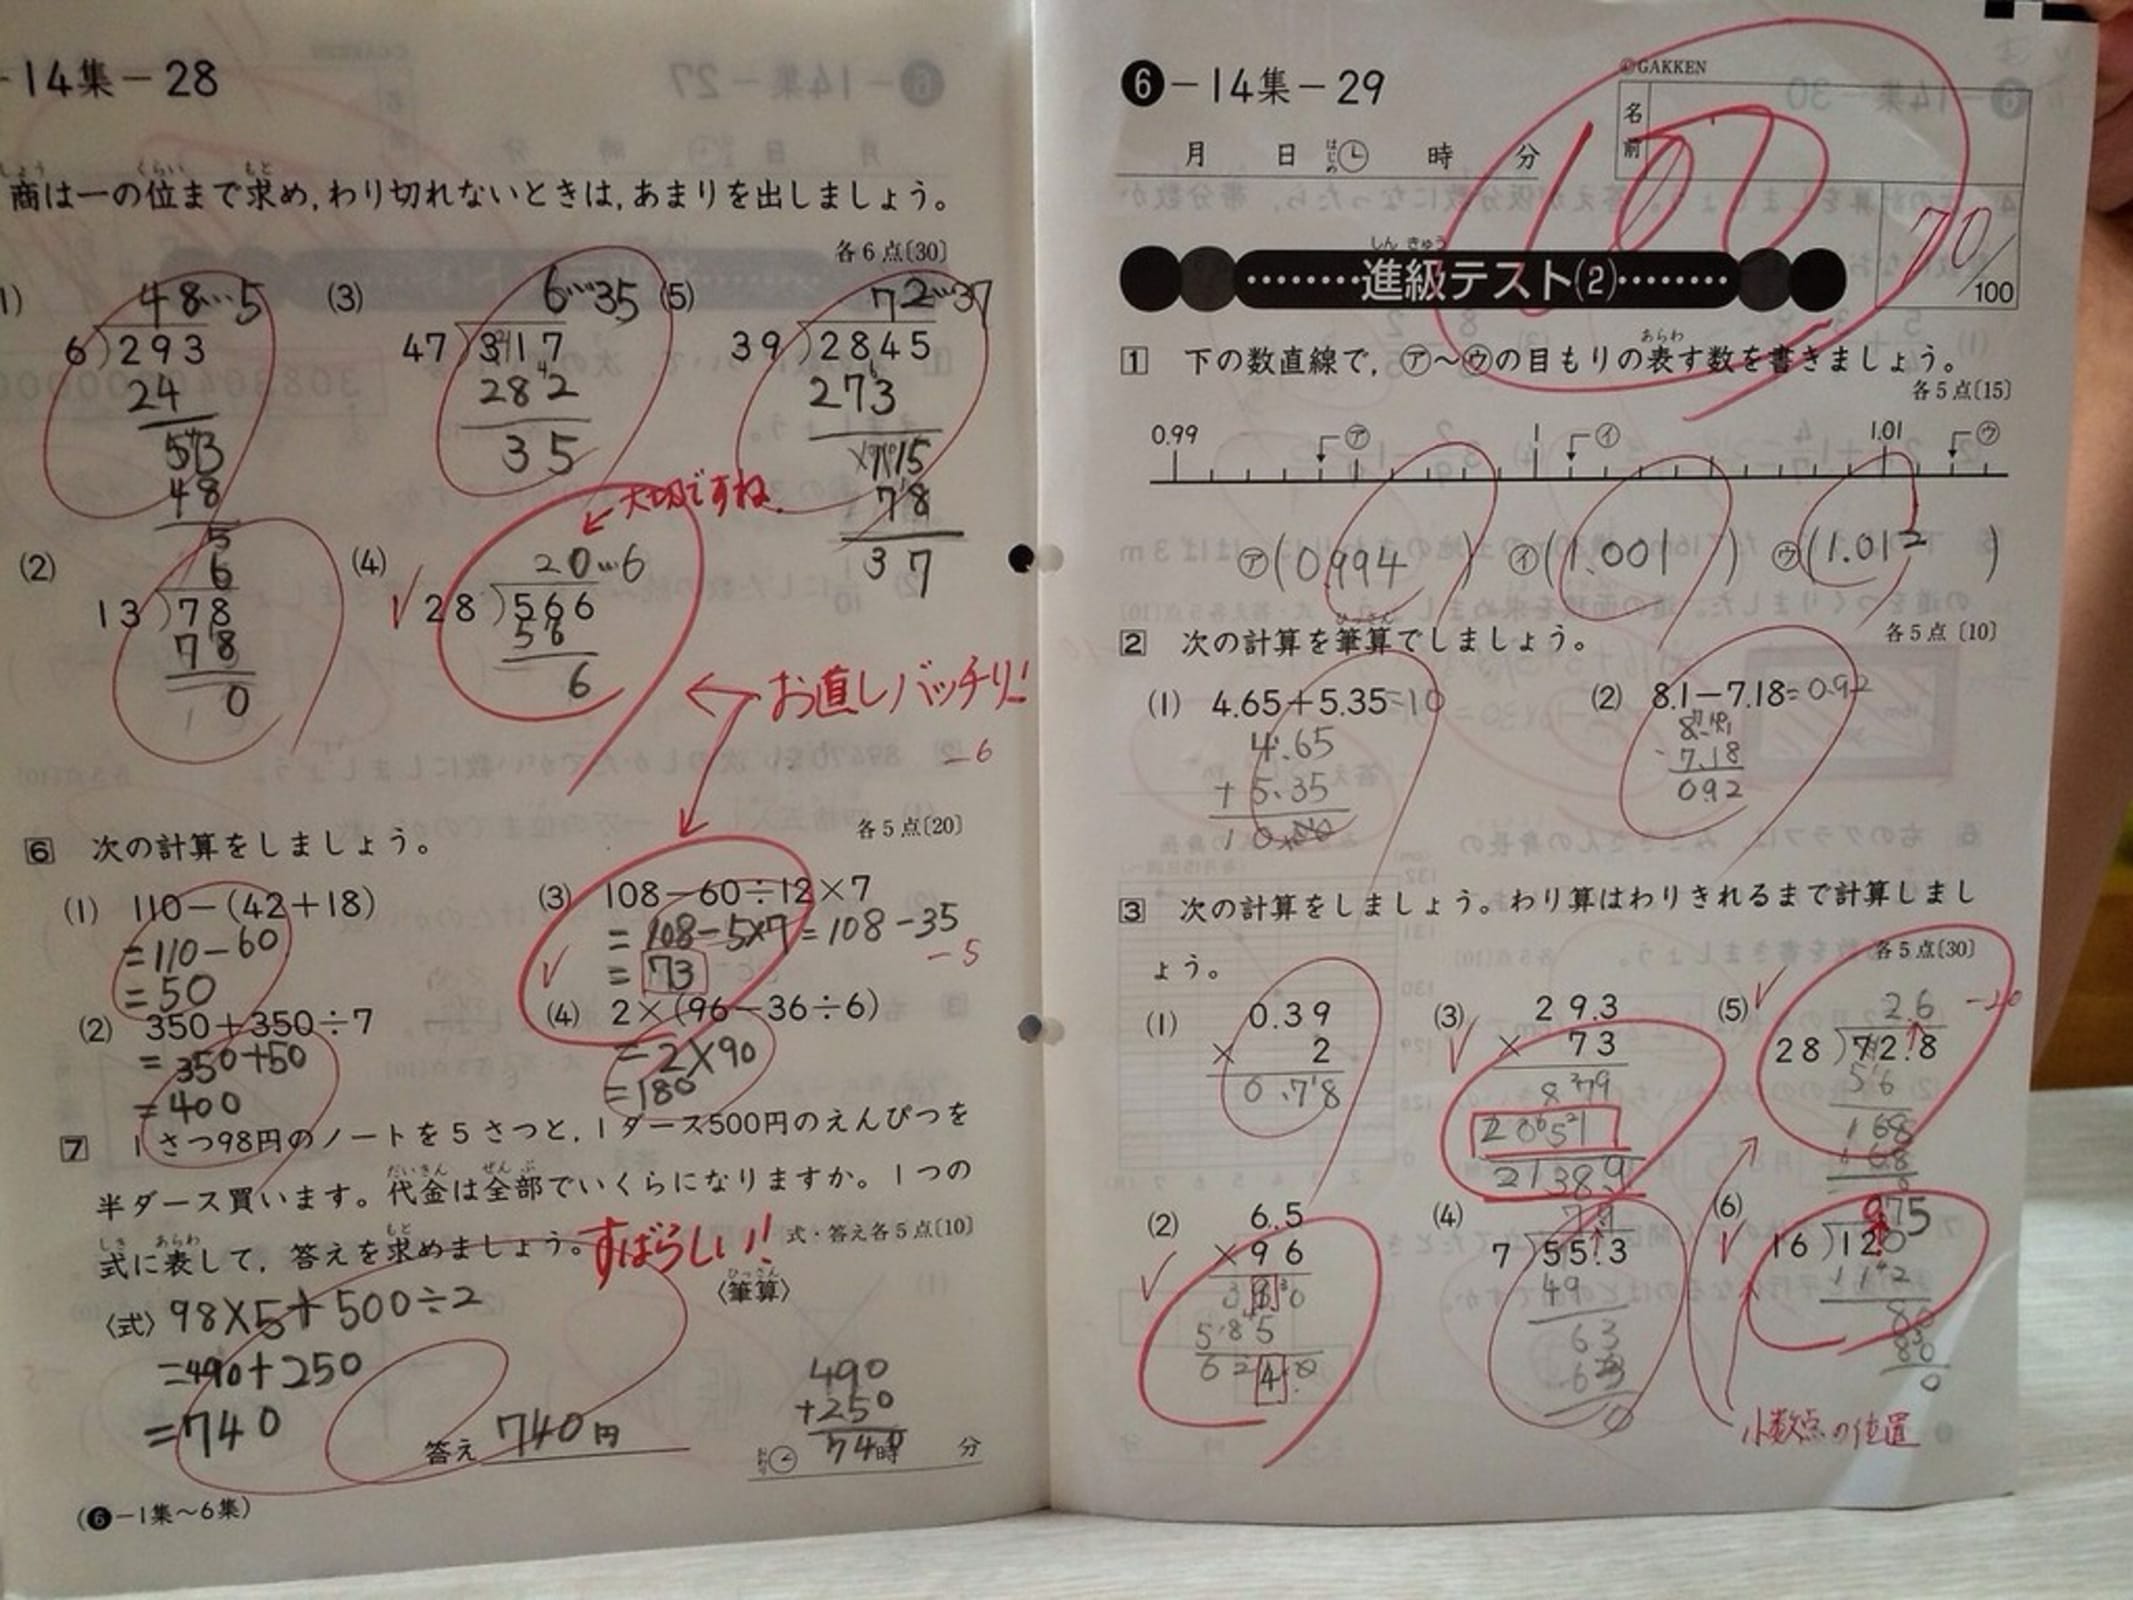 -14集-28
しょう くらい もと
商は一の位まで求め,わり切れないときは,あまりを出しましょう。
各6点〔30〕
1) 48…5
6)293
24
53
48
5
(3) 6…35
47)317
282
35
(5) 72…37
39)2845
273
115
78
37
大切ですね
(2) 6
13)78
78
0
(4) 20…6
28)566
56
6
お直しバッチリ!
-6
6 次の計算をしましょう。
各5点〔20〕
(1) 110-(42+18)
=110-60
=50
(2) 350+350÷7
=350+50
=400
(3) 108-60÷12×7
=108-5×7=108-35
=73
-5
(4) 2×(96-36÷6)
=2×90
=180
7 1さつ98円のノートを5さつと,1ダース500円のえんぴつを
だいきん ぜんぶ
半ダース買います。代金は全部でいくらになりますか。1つの
しき あらわ もと
式に表して,答えを求めましょう。
すばらしい!
式・答え各5点〔10〕
ひっさん
〈筆算〉
〈式〉98×5+500÷2
=490+250
=740
答え 740円
490
+250
740
おわり 時 分
(6-1集〜6集)
6-14集-29
©GAKKEN
名前
月 日 はじめ 時 分
100
70/100
しんきゅう
進級テスト(2)
あらわ
1 下の数直線で,㋐〜㋒の目もりの表す数を書きましょう。
各5点〔15〕
0.99 ㋐ 1 ㋑ 1.01 ㋒
㋐(0.994) ㋑(1.001) ㋒(1.012)
ひっさん
2 次の計算を筆算でしましょう。
各5点〔10〕
(1) 4.65+5.35=10
4.65
+5.35
10.00
(2) 8.1-7.18=0.92
8.1
-7.18
0.92
3 次の計算をしましょう。わり算はわりきれるまで計算しまし
ょう。
各5点〔30〕
(1) 0.39
× 2
0.78
(3) 29.3
× 73
879
2051
2138.9
(5) 2.6
-20
28)72.8
56
168
168
(2) 6.5
×96
390
585
624.0
(4) 7.9
7)55.3
49
63
63
0
(6) 0.75
16)12.0
112
80
80
0
小数点の位置